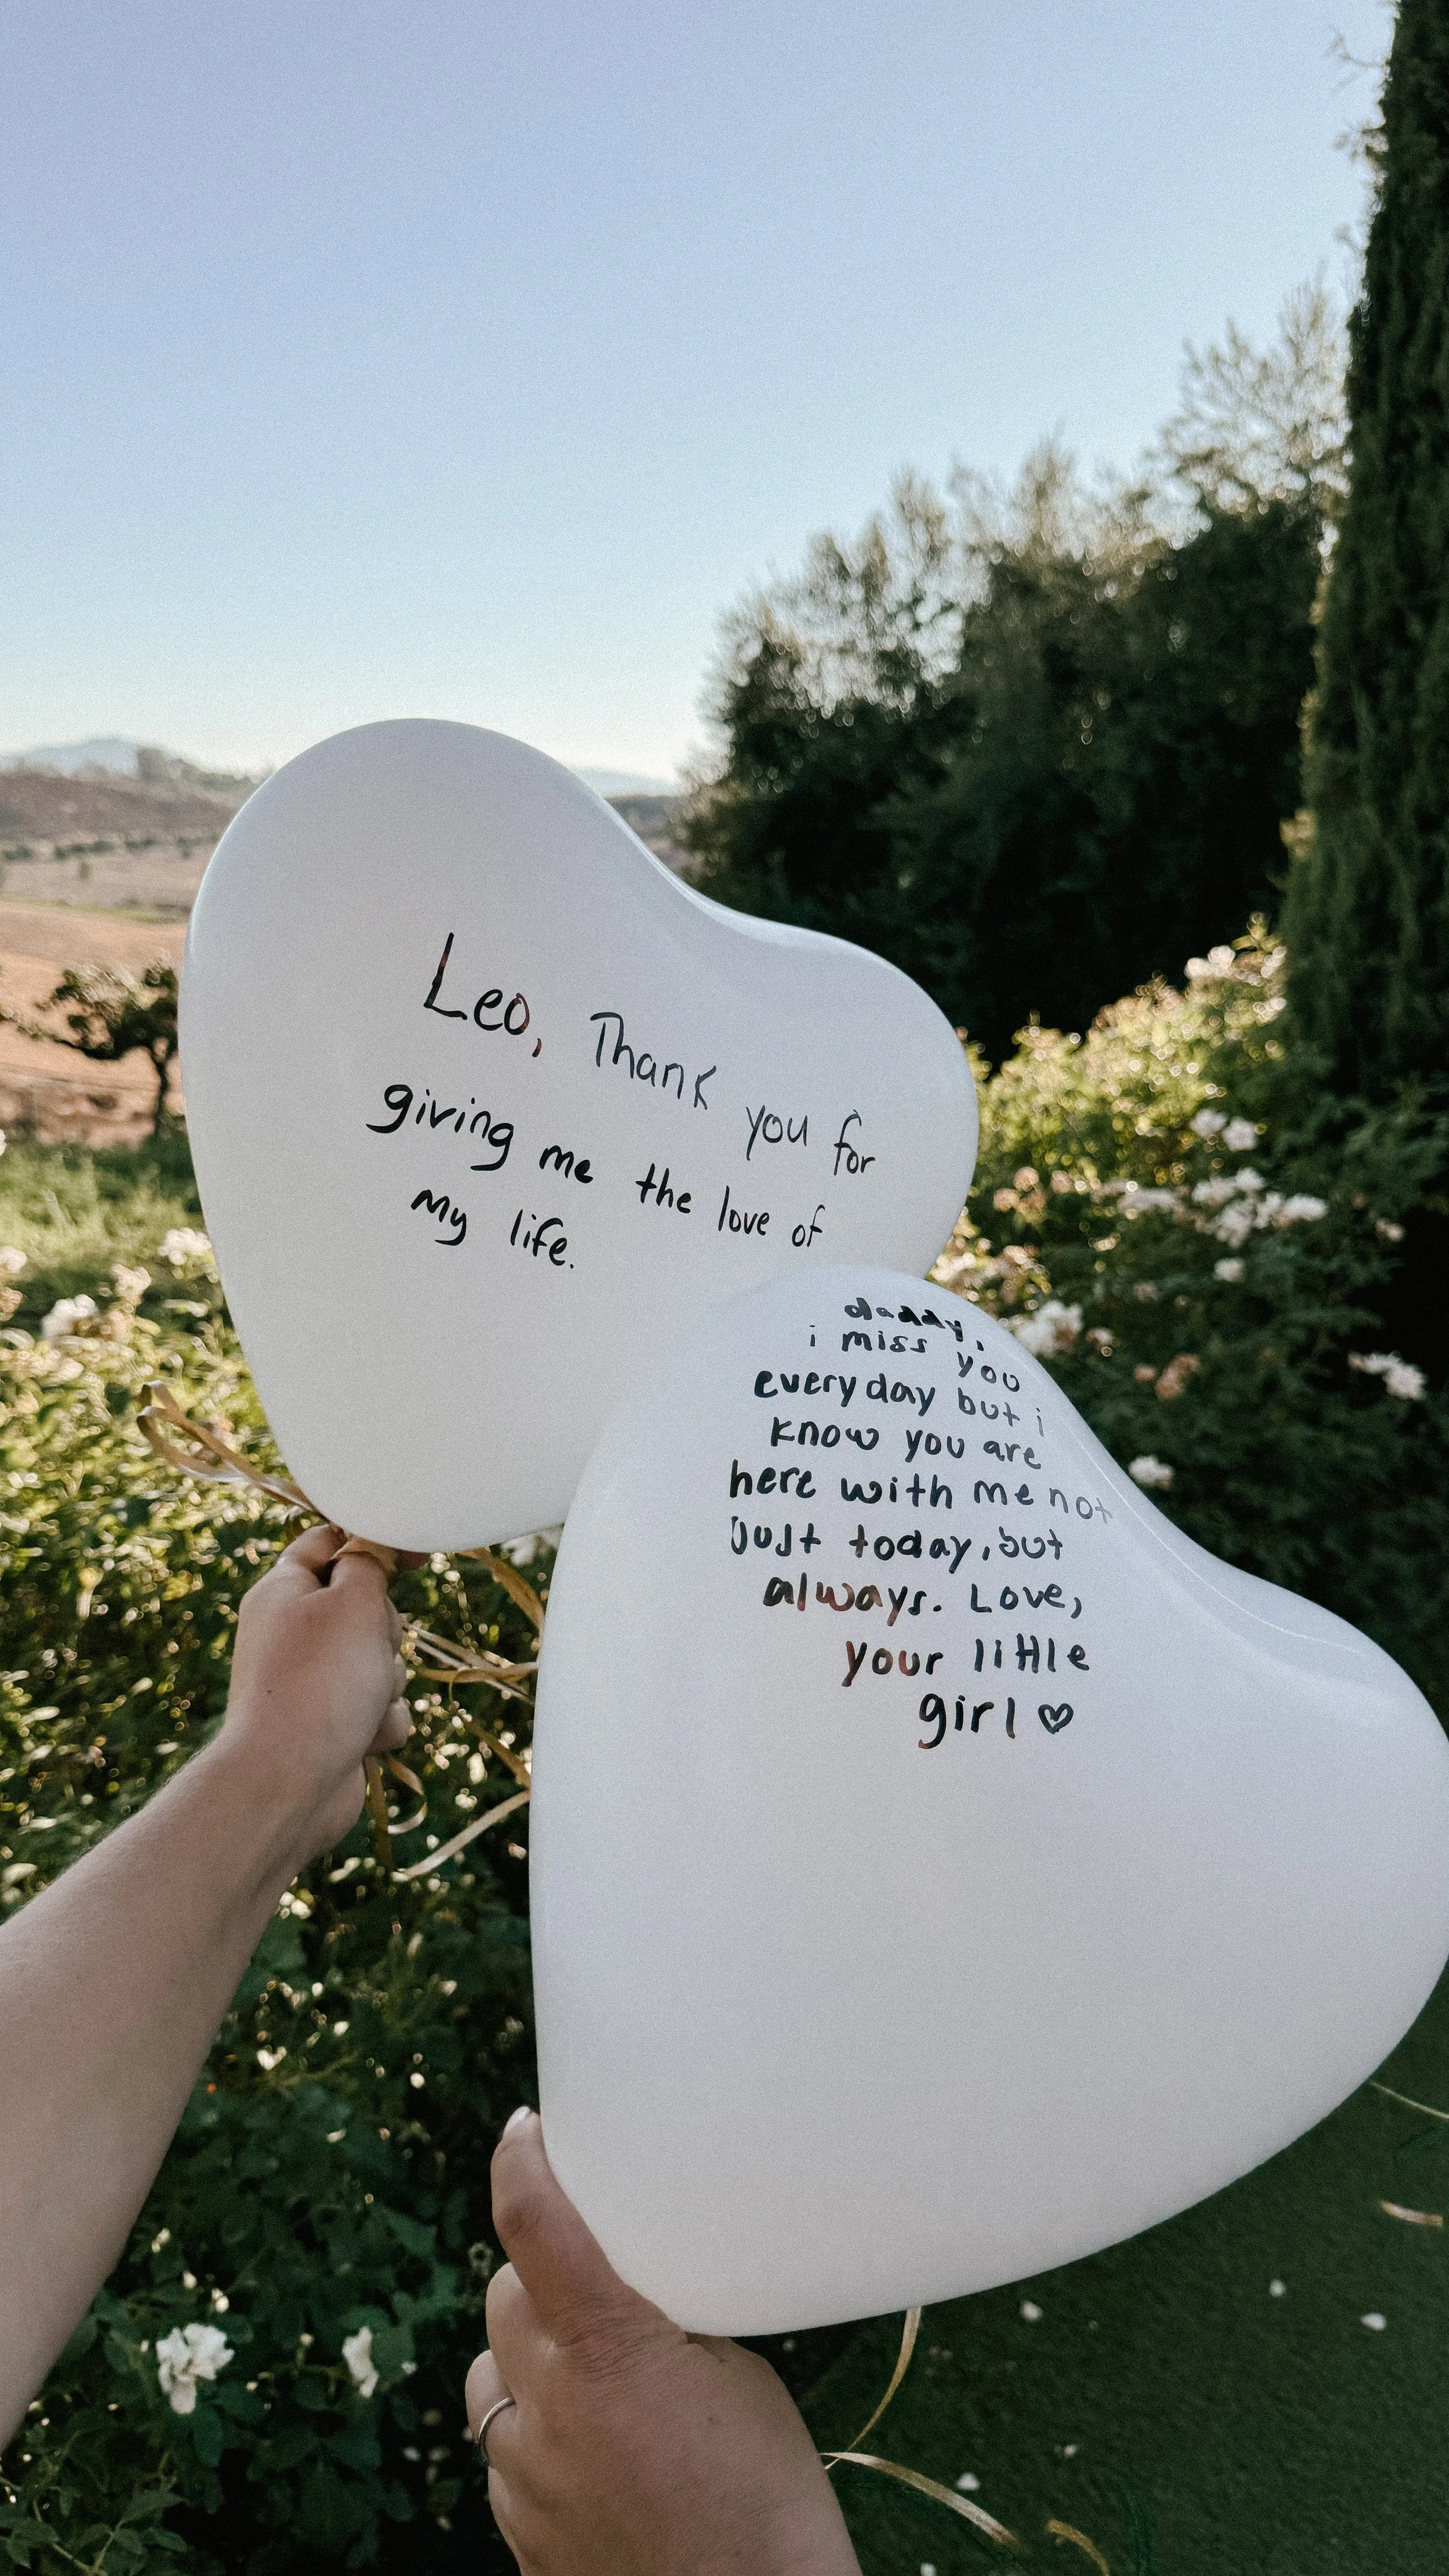 Leo, Thank you for
giving me the love of
my life.
daddy,
i miss you
everyday but i
know you are
here with me not
just today, but
always. Love,
your little
girl ♡